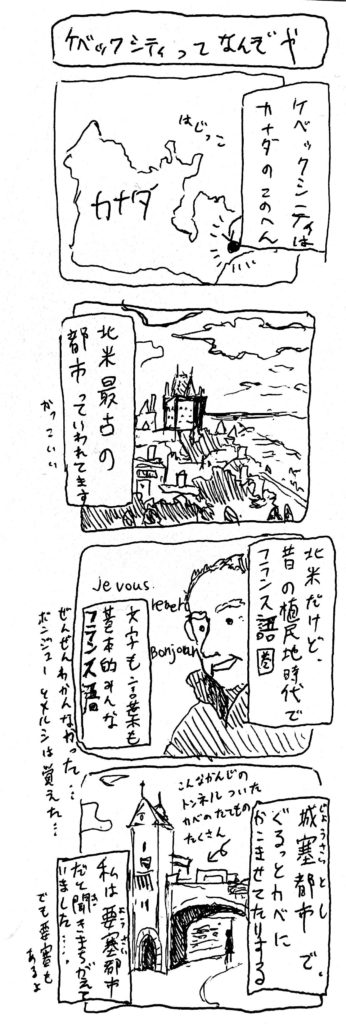 ケベックシティってなんぞや
ケベックシティは
カナダのこのへん
はじっこ
カナダ
北米最古の
都市っていわれてます
かっこいい
北米だけど、
昔の植民地時代で
フランス語圏
je vous
Bonjour
文字も言葉も
基本的みんな
フランス語
ぜんぜんわかんなかった…
ボンジューとメルシは覚えた…
じょうさいとし
城塞都市で、
ぐるっとカベに
かこませてたりする
こんなかんじの
トンネルついた
カベのたてもの
たくさん
ようさい
私は要塞都市
だと聞きまちがえて
いました…
でも要塞も
あるよ